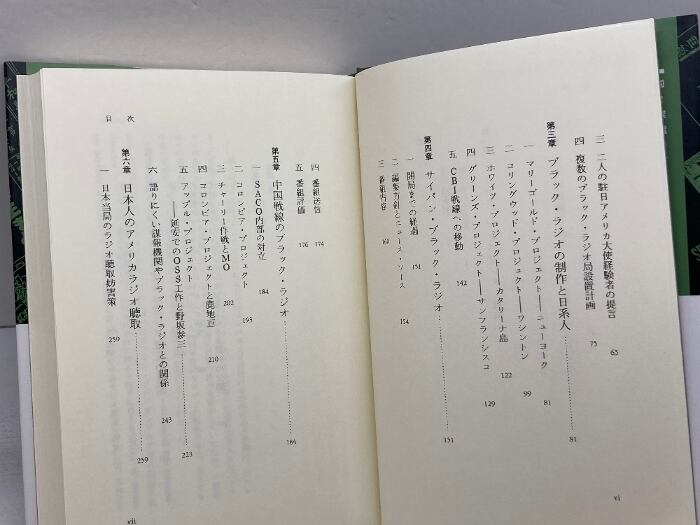 三 二人の駐日アメリカ大使経験者の提言 63
四 複数のブラック・ラジオ局設置計画 75
第三章 ブラック・ラジオの制作と日系人 81
一 マリーゴールド・プロジェクト――ニューヨーク 81
二 コリングウッド・プロジェクト――ワシントン 99
三 ホワイツ・プロジェクト――カタリーナ島 122
四 グリーンズ・プロジェクト――サンフランシスコ 129
五 CBI戦線への移動 142
第四章 サイパン・ブラック・ラジオ 151
一 開局までの経過 151
二 編集方針とニュース・ソース 154
三 番組内容
vi
目次
四 番組送信 174
五 番組評価 176
第五章 中国戦線のブラック・ラジオ 184
一 SACO内部の対立 184
二 コロンビア・プロジェクト 193
三 チャーリー作戦とMO 202
四 コロンビア・プロジェクトと鹿地亘 210
五 アップル・プロジェクト
――延安でのOSS工作と野坂参三 223
六 語りにくい諜報機関やブラック・ラジオとの関係 243
第六章 日本人のアメリカラジオ聴取 259
一 日本当局のラジオ聴取妨害策 259
vii